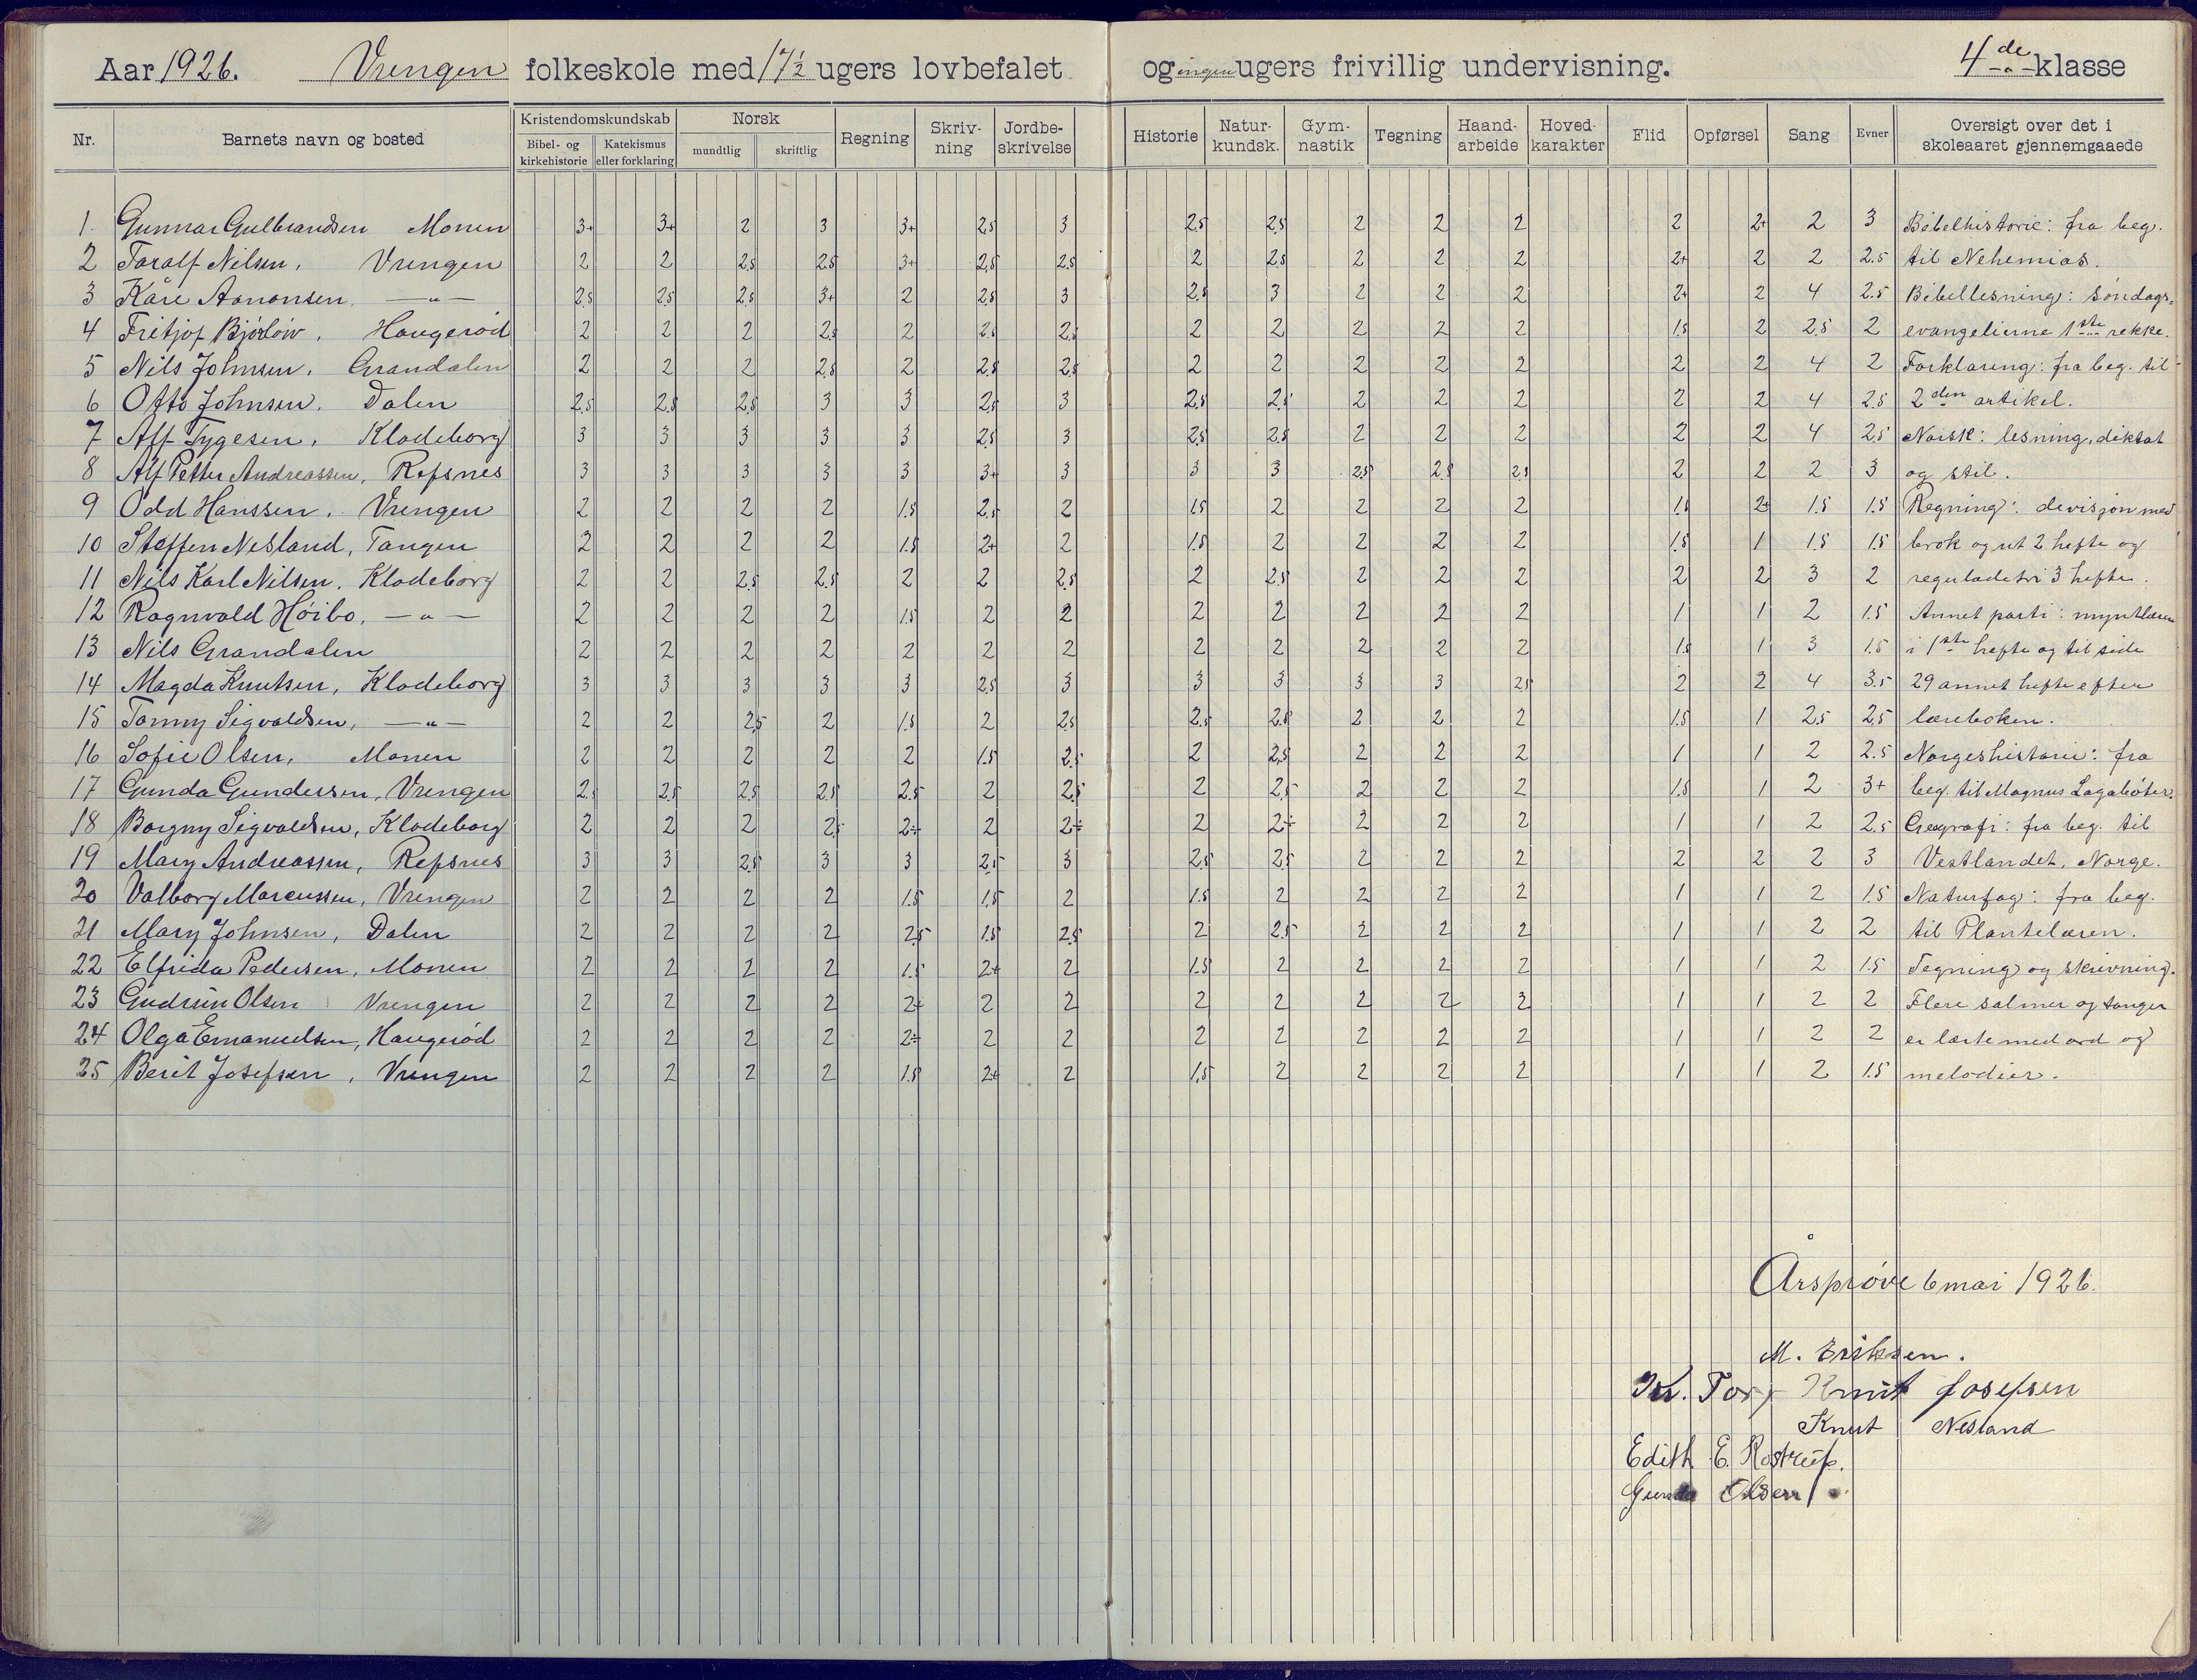 Aar 1926. Vrengen folkeskole med 17 1/2 ugers lovbefalet og ingen ugers frivillig undervisning. 4de klasse
Nr. Barnets navn og bosted Kristendomskundskab Norsk Regning Skriv-ning Jordbe-skrivelse Historie Natur-kundsk. Gym-nastik Tegning Haand-arbeide Hoved-karakter Flid Opførsel Sang Evner Oversigt over det i skoleaaret gjennemgaaede
Bibel- og kirkehistorie Katekismus eller forklaring mundtlig skriftlig
1. Gunnar Gulbrandsen Monen 3+ 3+ 2 3 3+ 2,5 3 2,5 2,5 2 2 2 2 2+ 2 3 Bibelhistorie: fra beg.
2 Taralf Nilsen, Vrengen 2 2 2,5 2,5 3+ 2,5 2,5 2 2,5 2 2 2 2+ 2 2 2.5 til Nehemias.
3 Kåre Aanonsen, —"— 2,5 2,5 2,5 3+ 2 2,5 3 2,5 3 2 2 2 2+ 2 4 2.5 Bibellesning: søndags-
4 Fritjof Bjørløiv, Haugerød 2 2 2 2,5 2 2,5 2,5 2 2 2 2 2 1.5 2 2.5 2 evangelierne 1ste rekke.
5 Nils Johnsen, Grandalen 2 2 2 2,5 2 2,5 2,5 2 2 2 2 2 2 2 4 2 Forklaring: fra beg. til
6 Otto Johnsen, Dalen 2,5 2,5 2,5 3 3 2,5 3 2,5 2,5 2 2 2 2 2 4 2.5 2den artikel.
7 Alf Tygesen, Klodeborg 3 3 3 3 3 2,5 3 2,5 2,5 2 2 2 2 2 4 2,5 Norsk: lesning, diktat
8 Alf Petter Andreassen, Refsnes 3 3 3 3 3 3+ 3 3 3 2,5 2,5 2,5 2 2 2 3 og stil.
9 Odd Hanssen, Vrengen 2 2 2 2 1.5 2,5 2 1.5 2 2 2 2 1.5 2+ 1.5 1.5 Regning: divisjon med
10 Steffen Nesland, Tangen 2 2 2 2 1.5 2+ 2 1.5 2 2 2 2 1.5 1 1.5 1.5 brøk og ut 2 hefte og
11 Nils Karl Nilsen, Klodeborg 2 2 2,5 2,5 2 2 2,5 2 2,5 2 2 2 2 2 3 2 reguladetri 3 hefte.
12 Ragnvald Høibo, —"— 2 2 2 2 1.5 2 2 2 2 2 2 2 1 1 2 1.5 Annet parti: myntlæren
13 Nils Grandalen 2 2 2 2 2 2 2 2 2 2 2 2 1.5 1 3 1.5 i 1ste hefte og til side
14 Magda Knutsen, Klodeborg 3 3 3 3 3 2,5 3 3 3 3 3 2,5 2 2 4 3.5 29 annet hefte efter
15 Tommy Sigvaldsen, —"— 2 2 2,5 2 1.5 2 2,5 2.5 2.5 2 2 2 1.5 1 2.5 2.5 læreboken.
16 Sofie Olsen, Monen 2 2 2 2 2 1.5 2.5 2 2,5 2 2 2 1 1 2 2.5 Norgeshistorie: fra
17 Gunda Gundersen, Vrengen 2.5 2,5 2,5 2,5 2.5 2 2,5 2 2,5 2 2 2 1.5 1 2 3+ beg. til Magnus Lagabøter.
18 Borgny Sigvaldsen, Klodeborg 2 2 2 2,5 2÷ 2 2÷ 2 2÷ 2 2 2 1 1 2 2.5 Geografi: fra beg. til
19 Mary Andreassen, Refsnes 3 3 2,5 3 3 2,5 3 2,5 2,5 2 2 2 2 2 2 3 Vestlandet, Norge.
20 Valborg Marcussen, Vrengen 2 2 2 2 1.5 1,5 2 1.5 2 2 2 2 1 1 2 1.5 Naturfag: fra beg.
21 Mary Johnsen, Dalen 2 2 2 2 2,5 1.5 2,5 2 2.5 2 2 2 1 1 2 2 til Plantelæren.
22 Elfrida Pedersen, Monen 2 2 2 2 1.5 2+ 2 1.5 2 2 2 2 1 1 2 1.5 Tegning og skrivning.
23 Gudrun Olsen Vrengen 2 2 2 2 2÷ 2 2 2 2 2 2 2 1 1 2 2 Flere salmer og sanger
24 Olga Emanuelsen, Haugerød 2 2 2 2 2÷ 2 2 2 2 2 2 2 1 1 2 2 er lærte med ord og
25 Berit Josefsen, Vrengen 2 2 2 2 1.5 2+ 2 1,5 2 2 2 2 1 1 2 1.5 melodier.
Årsprøve 6 mai 1926.
M. Eriksen.
Kr. Knut Josefsen
Knut Nesland
Edith E. Rostrup.
Gunda Olsen